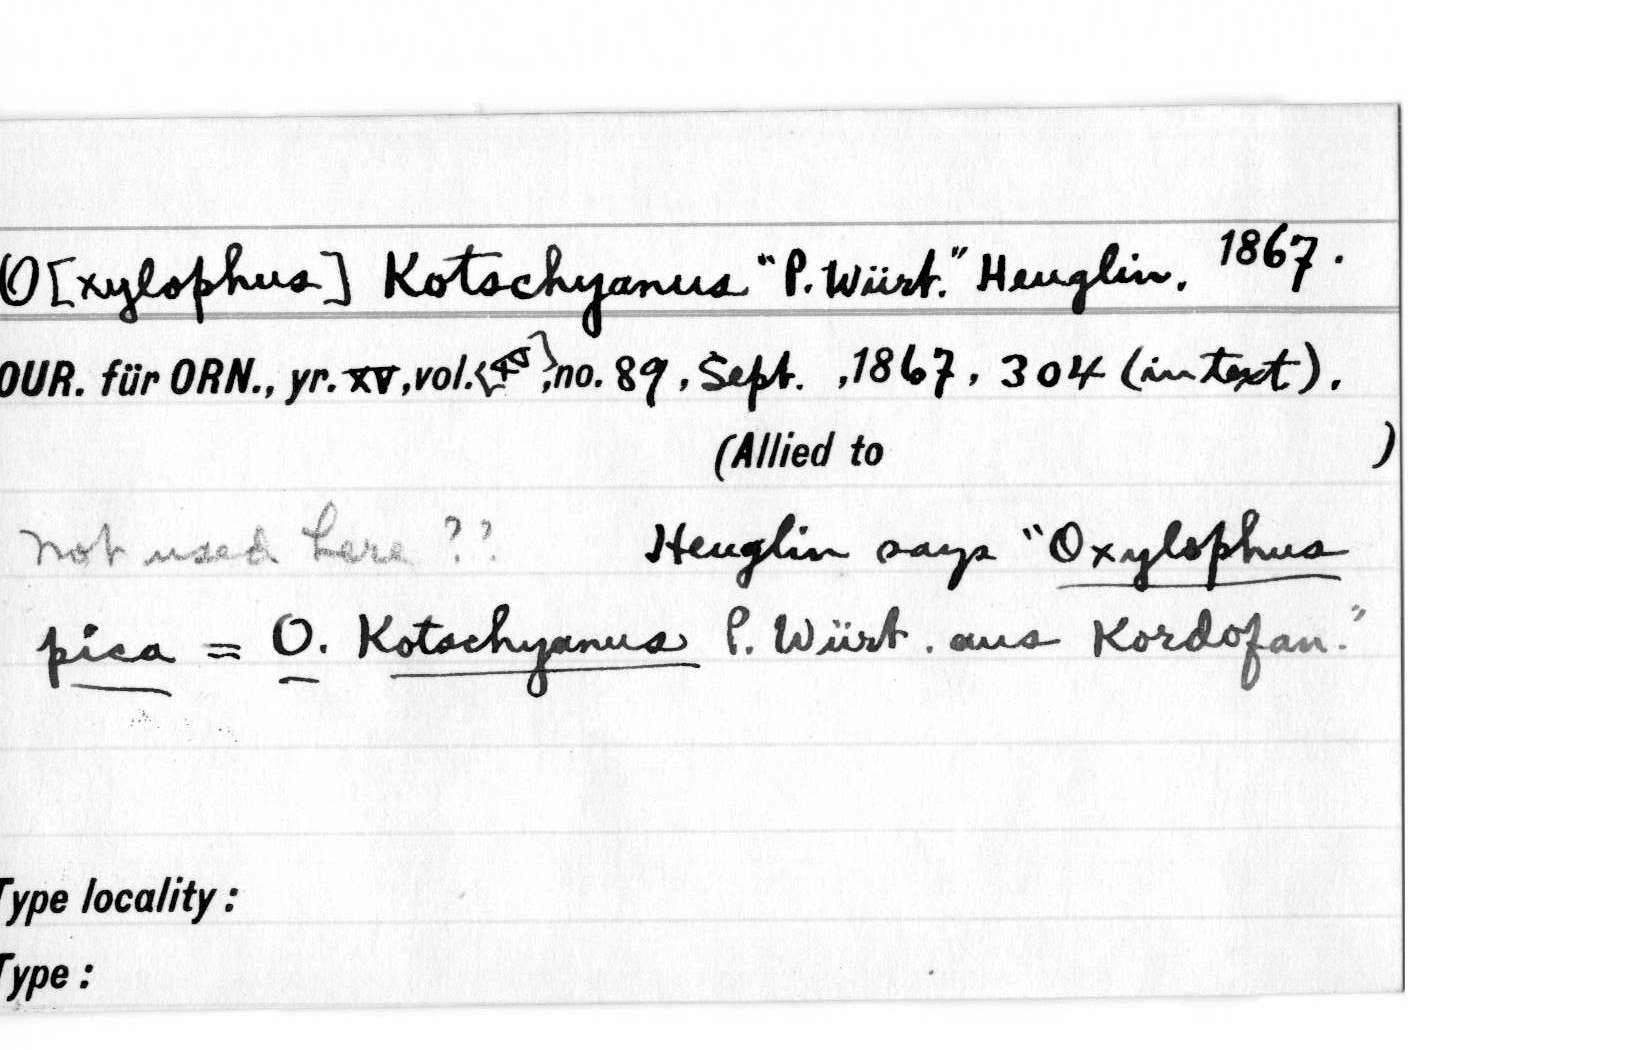 O[xylophus] Kotschyanus "P. Würt." Heuglin. 1867.
OUR. für ORN., yr. XV, vol. [XV], no. 89, Sept. , 1867, 304 (in text).
(Allied to )
not used here ?? Heuglin says "Oxylophus
pica = O. Kotschyanus P. Würt. aus Kordofan."
Type locality:
Type: